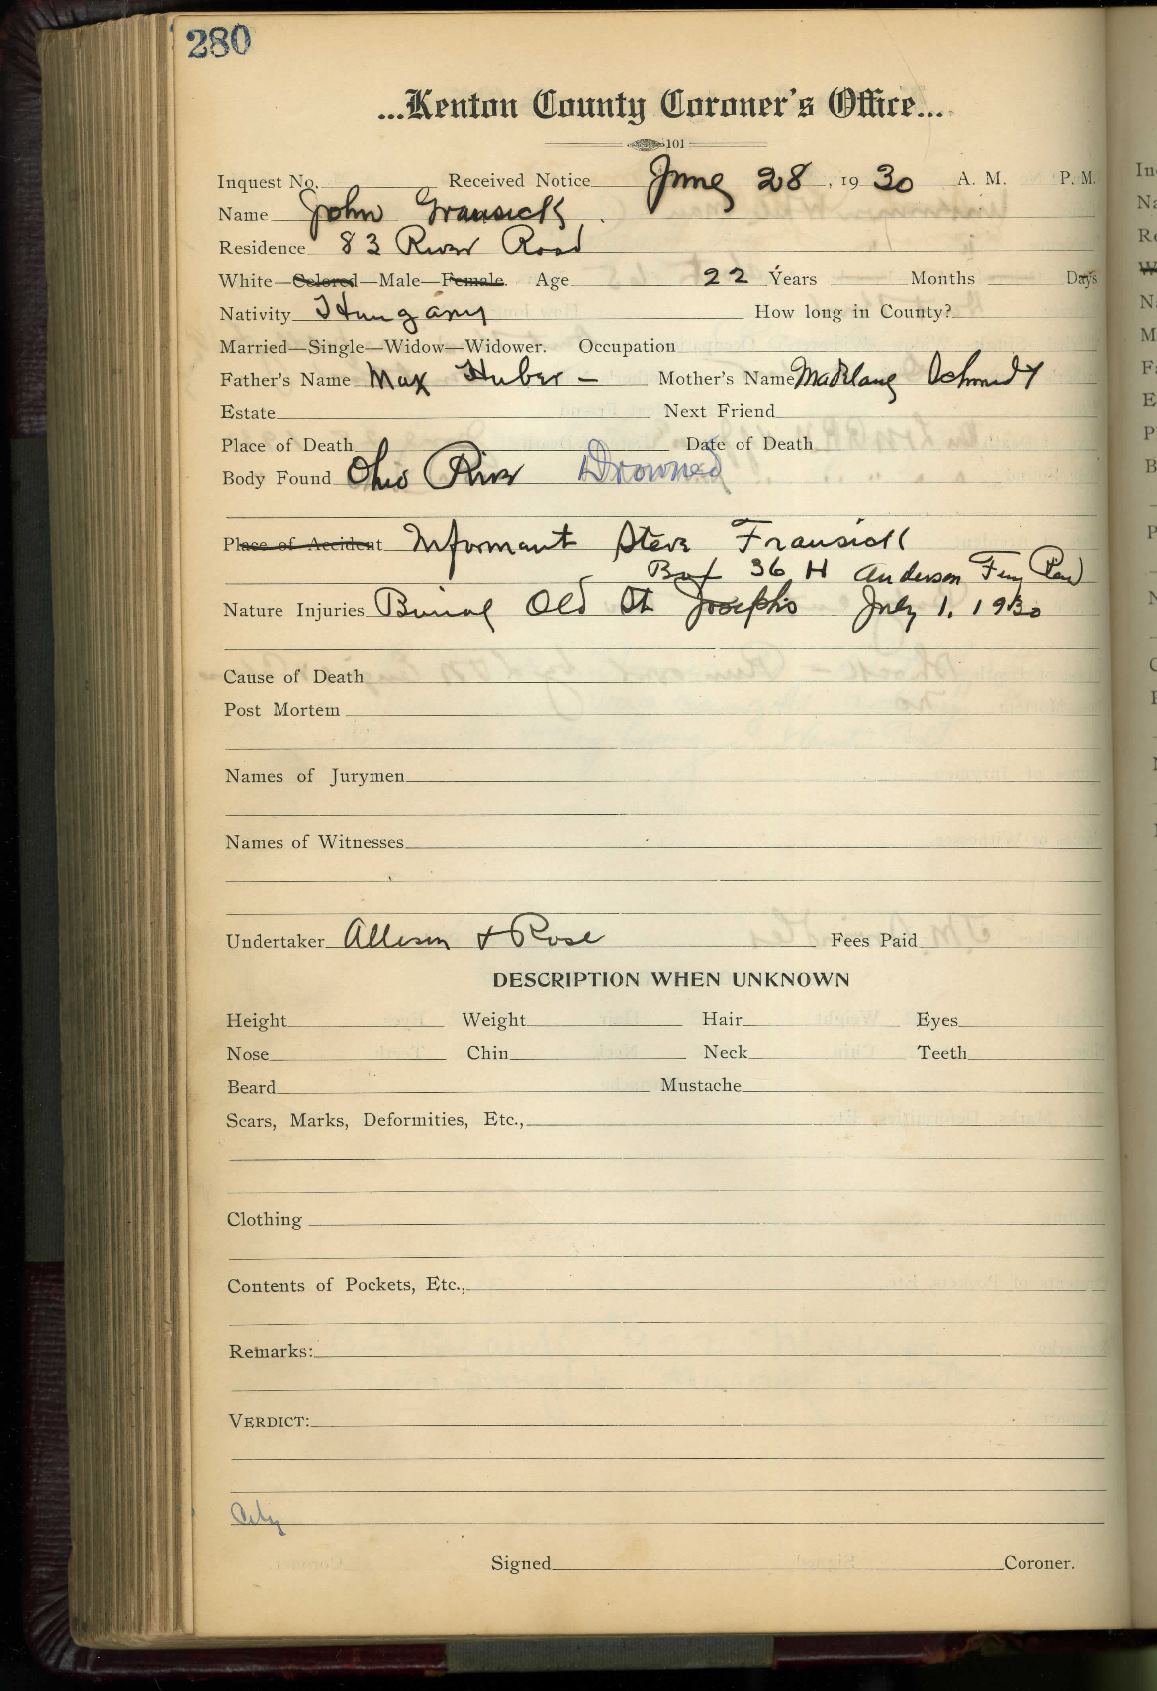 280
...Kenton County Coroner's Office...
101
Inquest No. Received Notice June 28, 1930 A. M. P. M.
Name John Gransick
Residence 83 River Road
White—Colored—Male—Female. Age 22 Years Months Days
Nativity Hungary How long in County?
Married—Single—Widow—Widower. Occupation
Father's Name Max Huber – Mother's Name Schmidt
Estate Next Friend
Place of Death Date of Death
Body Found Ohio River Drowned
Place of Accident Informant Steve Fransick
Box 36 H Anderson Ferry Road
Nature Injuries Burial Old St Josephs July 1. 1930
Cause of Death
Post Mortem
Names of Jurymen
Names of Witnesses
Undertaker Allison & Rose Fees Paid
DESCRIPTION WHEN UNKNOWN
Height Weight Hair Eyes
Nose Chin Neck Teeth
Beard Mustache
Scars, Marks, Deformities, Etc.,
Clothing
Contents of Pockets, Etc.,
Remarks:
VERDICT:
City
Signed Coroner.